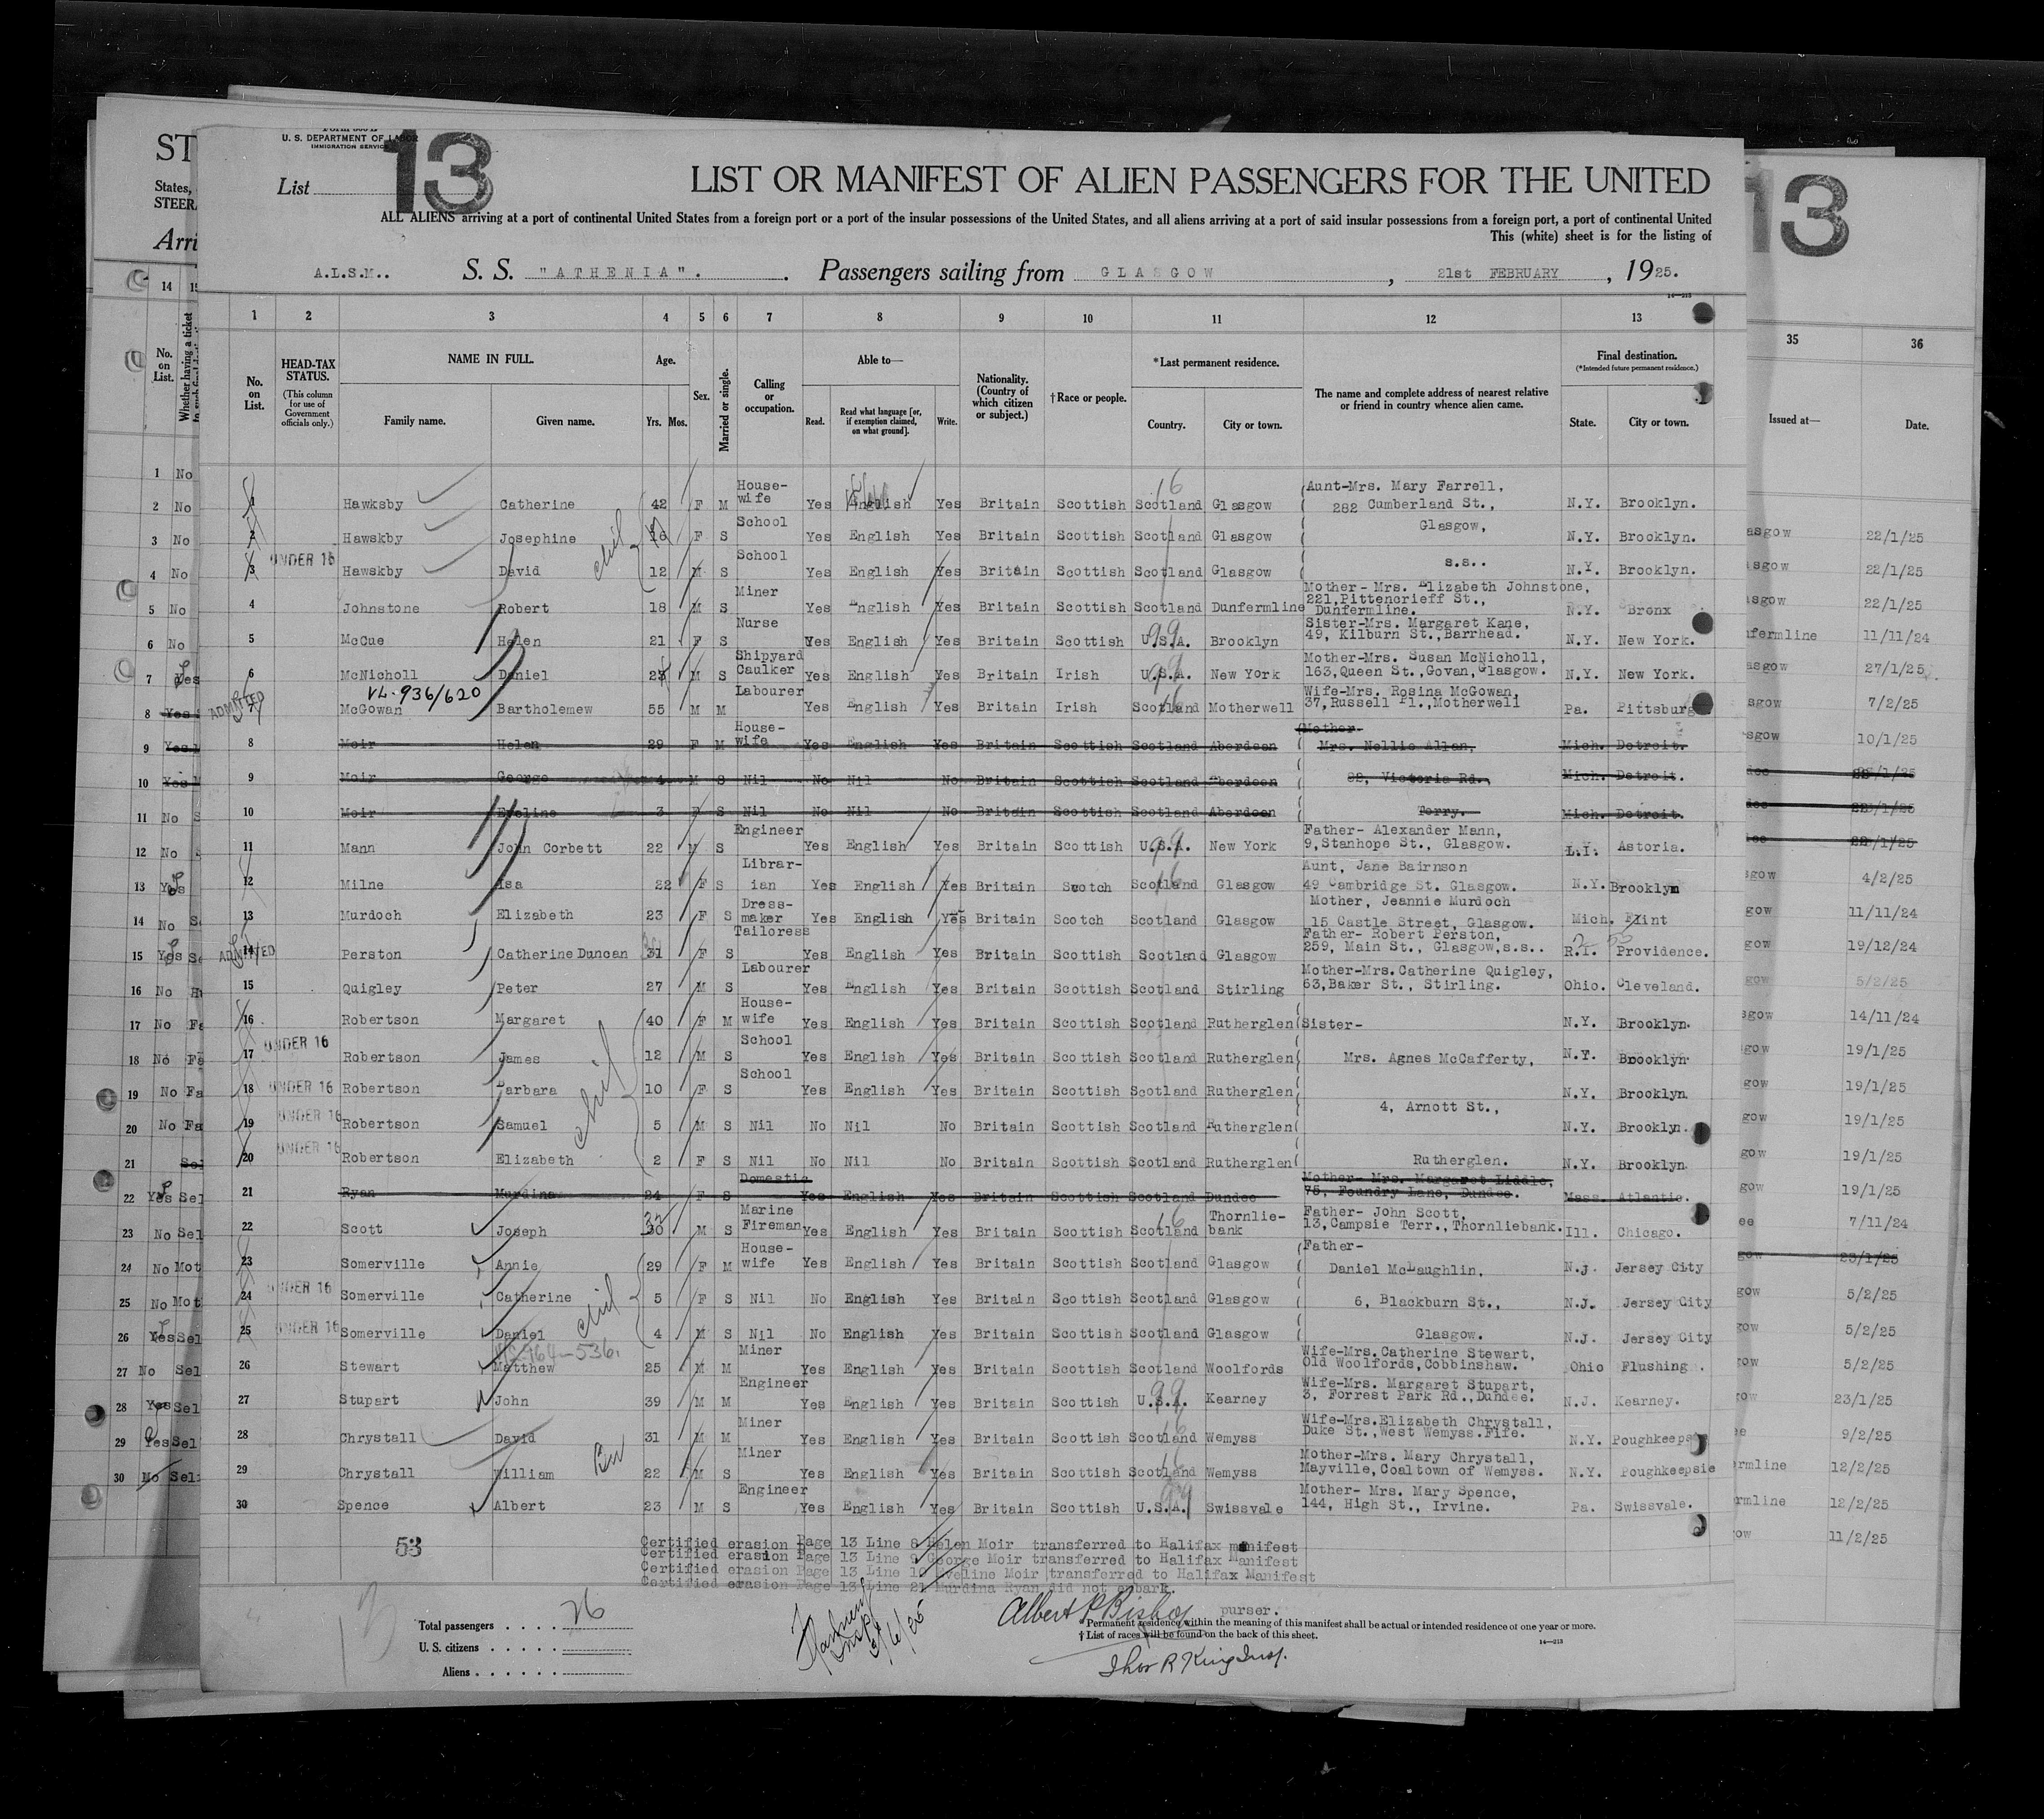 Form 500 B
U. S. DEPARTMENT OF LABOR
IMMIGRATION SERVICE
13
List
LIST OR MANIFEST OF ALIEN PASSENGERS FOR THE UNITED
ALL ALIENS arriving at a port of continental United States from a foreign port or a port of the insular possessions of the United States, and all aliens arriving at a port of said insular possessions from a foreign port, a port of continental United
This (white) sheet is for the listing of
A.L.S.M.. S. S. "ATHENIA". Passengers sailing from GLASGOW, 21st FEBRUARY, 1925.
14—213
1 2 3 4 5 6 7 8 9 10 11 12 13
No. on List. HEAD-TAX STATUS. (This column for use of Government officials only.) NAME IN FULL. Family name. Given name. Age. Yrs. Mos. Sex. Married or single. Calling or occupation. Able to— Read. Read what language [or, if exemption claimed, on what ground]. Write. Nationality. (Country of which citizen or subject.) †Race or people. *Last permanent residence. Country. City or town. The name and complete address of nearest relative or friend in country whence alien came. Final destination. (*Intended future permanent residence.) State. City or town.
1 Hawksby Catherine 42 F M House-wife Yes English Yes Britain Scottish Scotland Glasgow Aunt-Mrs. Mary Farrell, 282 Cumberland St., N.Y. Brooklyn.
2 Hawskby Josephine 16 F S School Yes English Yes Britain Scottish Scotland Glasgow Glasgow, N.Y. Brooklyn.
UNDER 16 3 Hawskby David 12 M S School Yes English Yes Britain Scottish Scotland Glasgow s.s.. N.Y. Brooklyn.
4 Johnstone Robert 18 M S Miner Yes English Yes Britain Scottish Scotland Dunfermline Mother- Mrs. Elizabeth Johnstone, 221,Pittencrieff St., Dunfermline. N.Y. Bronx
5 McCue Helen 21 F S Nurse Yes English Yes Britain Scottish U.S.A. Brooklyn Sister-Mrs. Margaret Kane, 49, Kilburn St.,Barrhead. N.Y. New York.
6 McNicholl Daniel 23 M S Shipyard Caulker Yes English Yes Britain Irish U.S.A. New York Mother-Mrs. Susan McNicholl, 163,Queen St.,Govan,Glasgow. N.Y. New York.
VL.936/620
ADMITTED 7 McGowan Bartholemew 55 M M Labourer Yes English Yes Britain Irish Scotland Motherwell Wife-Mrs. Rosina McGowan, 37,Russell Pl.,Motherwell Pa. Pittsburg
8 Moir Helen 29 F M House-wife Yes English Yes Britain Scottish Scotland Aberdeen Mother Mrs. Nellie Allan, Mich. Detroit.
9 Moir George 4 M S Nil No Nil No Britain Scottish Scotland Aberdeen 98, Victoria Rd., Mich. Detroit.
10 Moir Eveline 3 F S Nil No Nil No Britain Scottish Scotland Aberdeen Torry. Mich. Detroit.
11 Mann John Corbett 22 M S Engineer Yes English Yes Britain Scottish U.S.A. New York Father- Alexander Mann, 9,Stanhope St., Glasgow. L.I. Astoria.
12 Milne Isa 22 F S Librar-ian Yes English Yes Britain Scotch Scotland Glasgow Aunt, Jane Bairnson 49 Cambridge St. Glasgow. N.Y. Brooklyn
13 Murdoch Elizabeth 23 F S Dress-maker Yes English Yes Britain Scotch Scotland Glasgow Mother, Jeannie Murdoch 15 Castle Street, Glasgow. Mich. Flint
ADMITTED 14 Perston Catherine Duncan 31 F S Tailoress Yes English Yes Britain Scottish Scotland Glasgow Father- Robert Perston, 259, Main St., Glasgow,s.s.. R.I. Providence.
15 Quigley Peter 27 M S Labourer Yes English Yes Britain Scottish Scotland Stirling Mother-Mrs.Catherine Quigley, 53,Baker St., Stirling. Ohio. Cleveland.
16 Robertson Margaret 40 F M House-wife Yes English Yes Britain Scottish Scotland Rutherglen Sister- N.Y. Brooklyn.
UNDER 16 17 Robertson James 12 M S School Yes English Yes Britain Scottish Scotland Rutherglen Mrs. Agnes McCafferty, N.Y. Brooklyn
UNDER 16 18 Robertson Barbara 10 F S School Yes English Yes Britain Scottish Scotland Rutherglen N.Y. Brooklyn.
UNDER 16 19 Robertson Samuel 5 M S Nil No Nil No Britain Scottish Scotland Rutherglen 4, Arnott St., N.Y. Brooklyn.
UNDER 16 20 Robertson Elizabeth 2 F S Nil No Nil No Britain Scottish Scotland Rutherglen Rutherglen. N.Y. Brooklyn
21 Ryan Murdina 24 F S Domestic Yes English Yes Britain Scottish Scotland Dundee Mother- Mrs. Margaret Liddle, 75, Foundry Lane, Dundee. Mass. Atlantic.
22 Scott Joseph 30 M S Marine Fireman Yes English Yes Britain Scottish Scotland Thornlie-bank Father- John Scott, 13,Campsie Terr.,Thornliebank. Ill. Chicago.
23 Somerville Annie 29 F M House-wife Yes English Yes Britain Scottish Scotland Glasgow Father- Daniel McLaughlin, N.J. Jersey City
UNDER 16 24 Somerville Catherine 5 F S Nil No English Yes Britain Scottish Scotland Glasgow 6, Blackburn St., N.J. Jersey City
UNDER 16 25 Somerville Daniel 4 M S Nil No English Yes Britain Scottish Scotland Glasgow Glasgow. N.J. Jersey City
26 Stewart Matthew 25 M M Miner Yes English Yes Britain Scottish Scotland Woolfords Wife-Mrs.Catherine Stewart, Old Woolfords,Cobbinshaw. Ohio Flushing.
27 Stupart John 39 M M Engineer Yes English Yes Britain Scottish U.S.A. Kearney Wife-Mrs. Margaret Stupart, 3, Forrest Park Rd.,Dundee. N.J. Kearney.
28 Chrystall David 31 M M Miner Yes English Yes Britain Scottish Scotland Wemyss Wife-Mrs.Elizabeth Chrystall, Duke St.,West Wemyss.Fife. N.Y. Poughkeepsie
29 Chrystall William 22 M S Miner Yes English Yes Britain Scottish Scotland Wemyss Mother-Mrs. Mary Chrystall, Mayville,Coaltown of Wemyss. N.Y. Poughkeepsie
30 Spence Albert 23 M S Engineer Yes English Yes Britain Scottish U.S.A. Swissvale Mother- Mrs. Mary Spence, 144, High St., Irvine. Pa. Swissvale.
53
Certified erasion Page 13 Line 8 Helen Moir transferred to Halifax manifest
Certified erasion Page 13 Line 9 George Moir transferred to Halifax Manifest
Certified erasion Page 13 Line 10 Eveline Moir transferred to Halifax Manifest
Certified erasion Page 13 Line 21 Murdina Ryan did not embark.
Total passengers . . . . . 26
U. S. citizens . . . . .
Aliens . . . . . .
Albert P Bishop purser.
* Permanent residence within the meaning of this manifest shall be actual or intended residence of one year or more.
† List of races will be found on the back of this sheet.
14—213
Thos R King Insp.
13
35 36
Issued at— Date.
asgow 22/1/25
asgow 22/1/25
asgow 22/1/25
nfermline 11/11/24
asgow 27/1/25
sgow 7/2/25
sgow 10/1/25
sgow 4/2/25
gow 11/11/24
gow 19/12/24
gow 5/2/25
sgow 14/11/24
gow 19/1/25
gow 19/1/25
gow 19/1/25
gow 19/1/25
gow 19/1/25
ee 7/11/24
gow 23/1/25
gow 5/2/25
gow 5/2/25
gow 5/2/25
gow 23/1/25
ee 9/2/25
ermline 12/2/25
ermline 12/2/25
ow 11/2/25